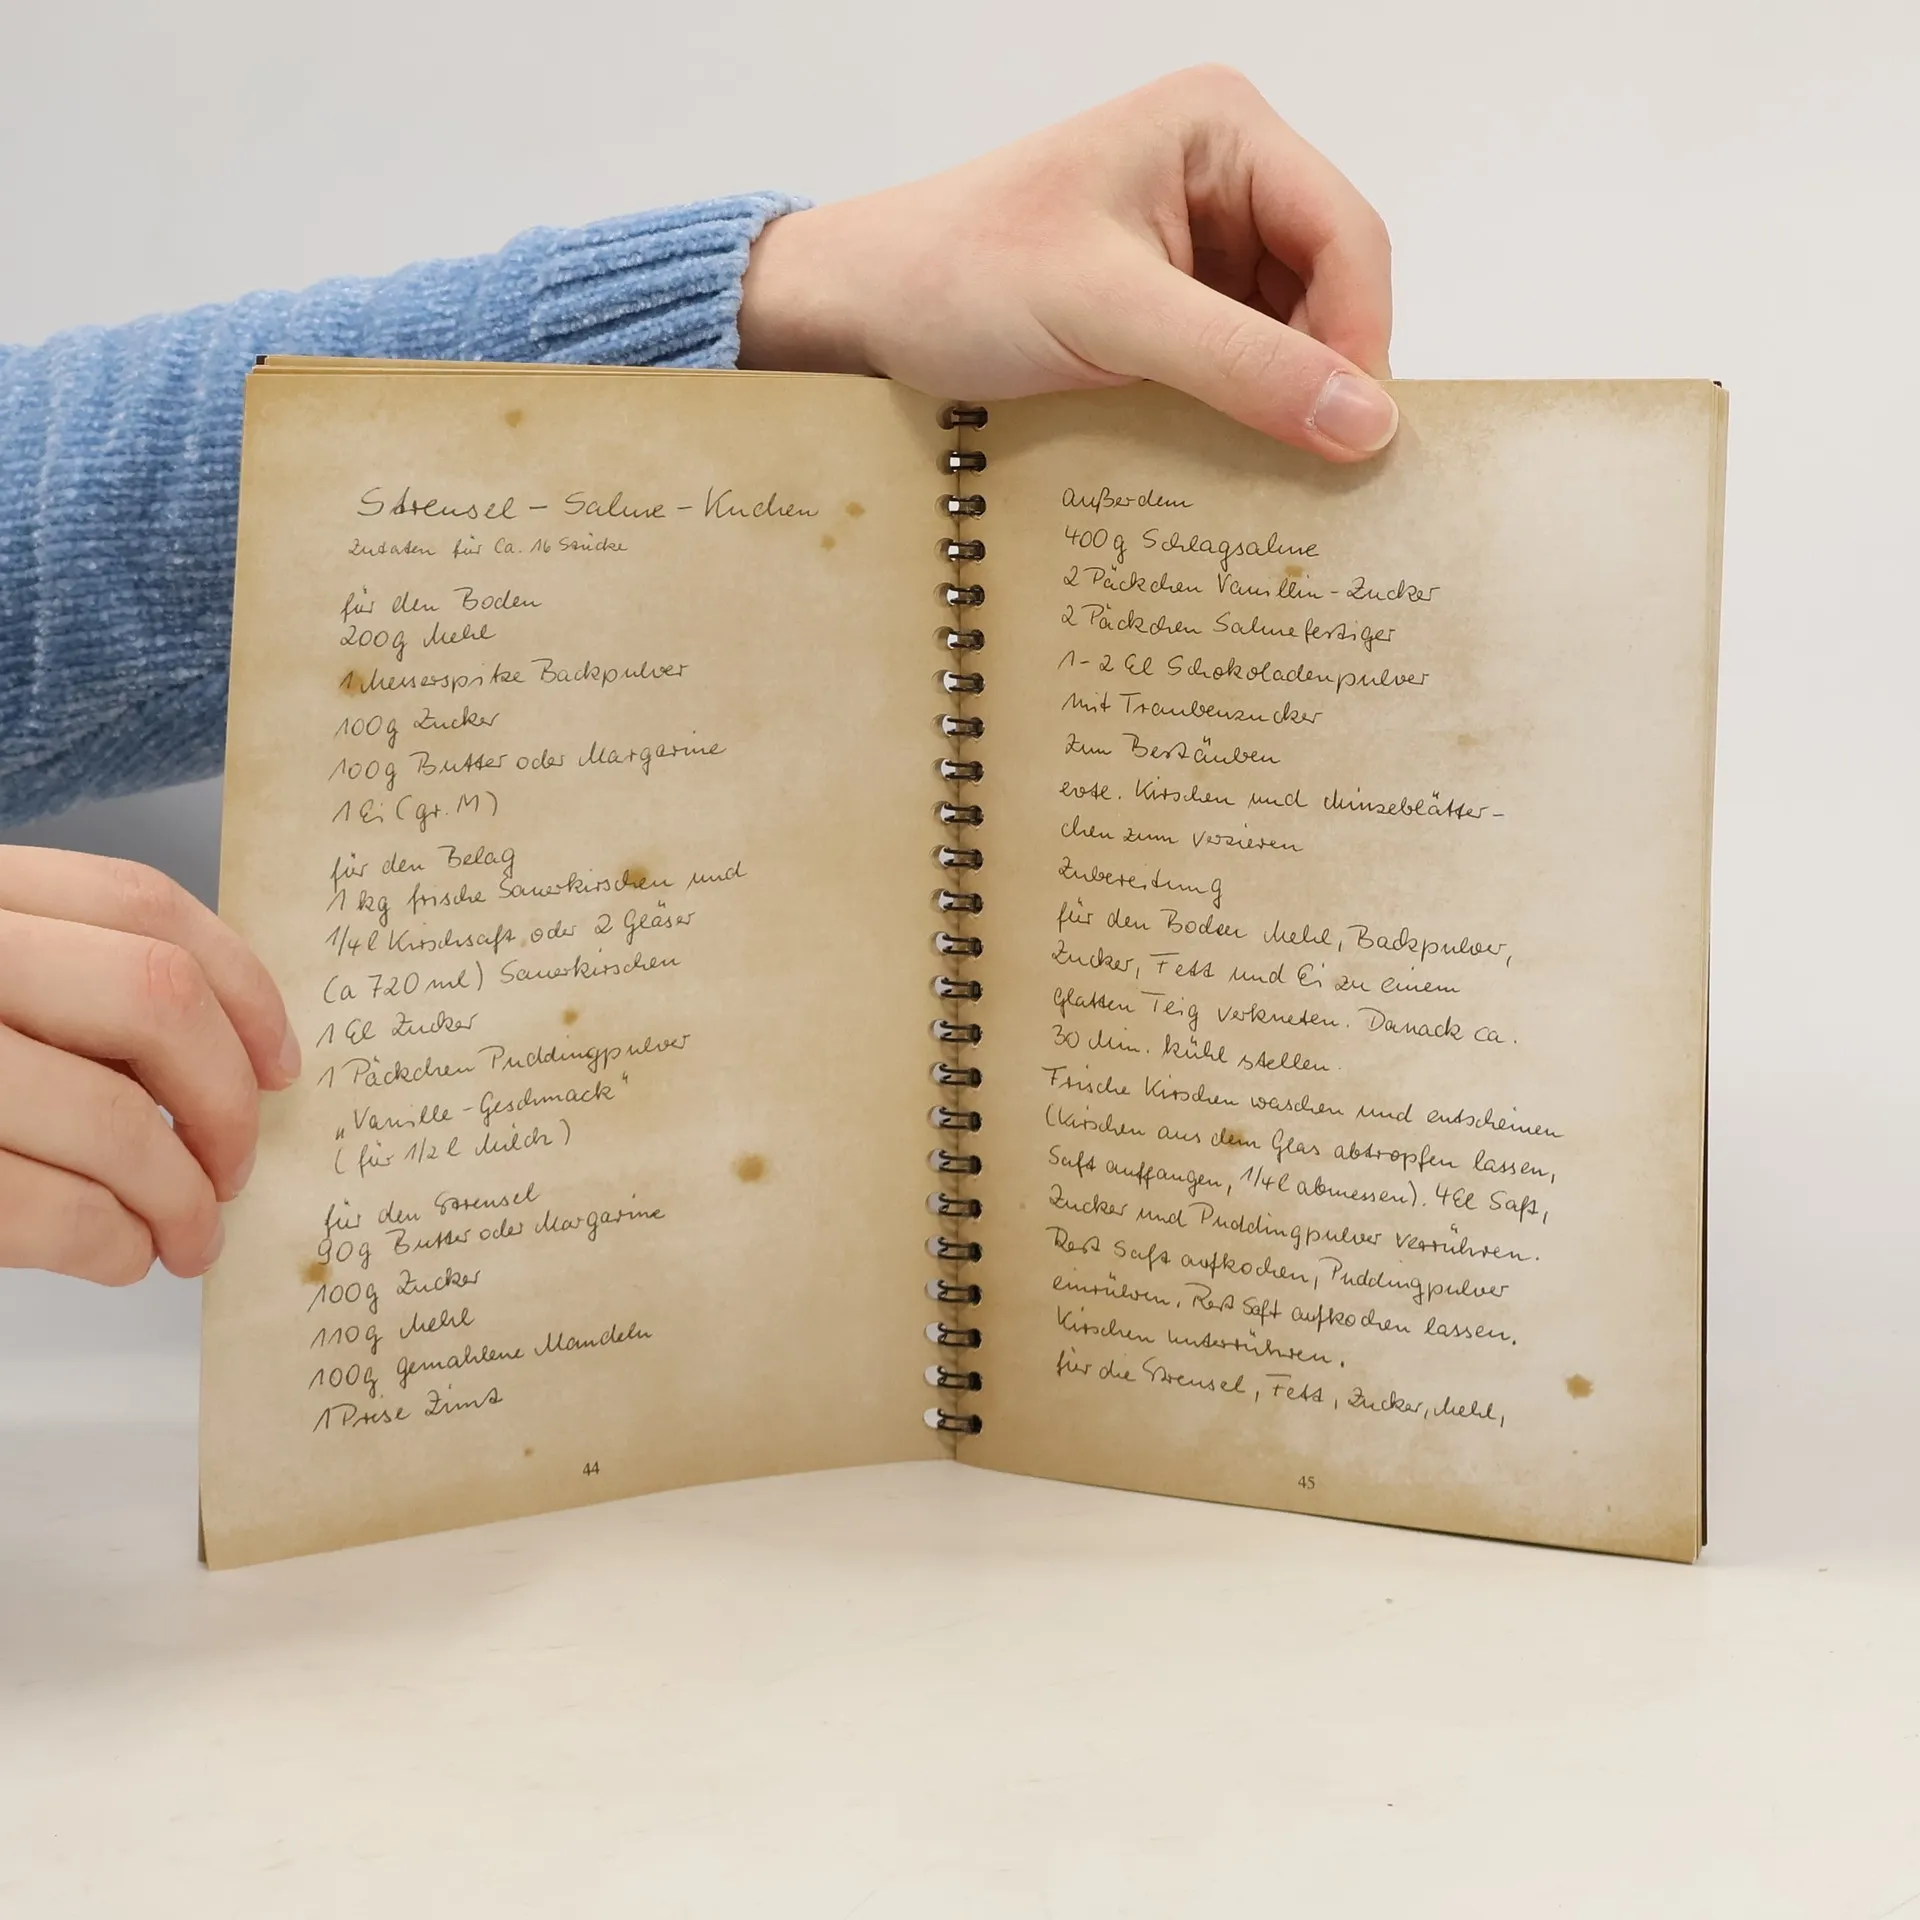 Streusel - Sahne - Kuchen
Zutaten für ca. 16 Stücke
für den Boden
200g Mehl
1 Messerspitze Backpulver
100g Zucker
100g Butter oder Margarine
1 Ei (gr. M)
für den Belag
1 kg frische Sauerkirschen und
1/4 l Kirschsaft oder 2 Gläser
(a 720 ml) Sauerkirschen
1 El Zucker
1 Päckchen Puddingpulver
„Vanille - Geschmack"
(für 1/2 l Milch)
für den Streusel
90g Butter oder Margarine
100g Zucker
110g Mehl
100g gemahlene Mandeln
1 Prise Zimt
44
außerdem
400g Schlagsahne
2 Päckchen Vanillin - Zucker
2 Päckchen Sahnefestiger
1-2 El Schokoladenpulver
mit Traubenzucker
zum Bestäuben
evtl. Kirschen und Minzeblätter-
chen zum verzieren
Zubereitung
für den Boden Mehl, Backpulver,
Zucker, Fett und Ei zu einem
glatten Teig verkneten. Danach ca.
30 Min. kühl stellen.
Frische Kirschen waschen und entsteinen
(Kirschen aus dem Glas abtropfen lassen,
Saft auffangen, 1/4 l abmessen). 4 El Saft,
Zucker und Puddingpulver verrühren.
Rest Saft aufkochen, Puddingpulver
einrühren. Rest Saft aufkochen lassen.
Kirschen unterrühren.
für die Streusel, Fett, Zucker, Mehl,
45